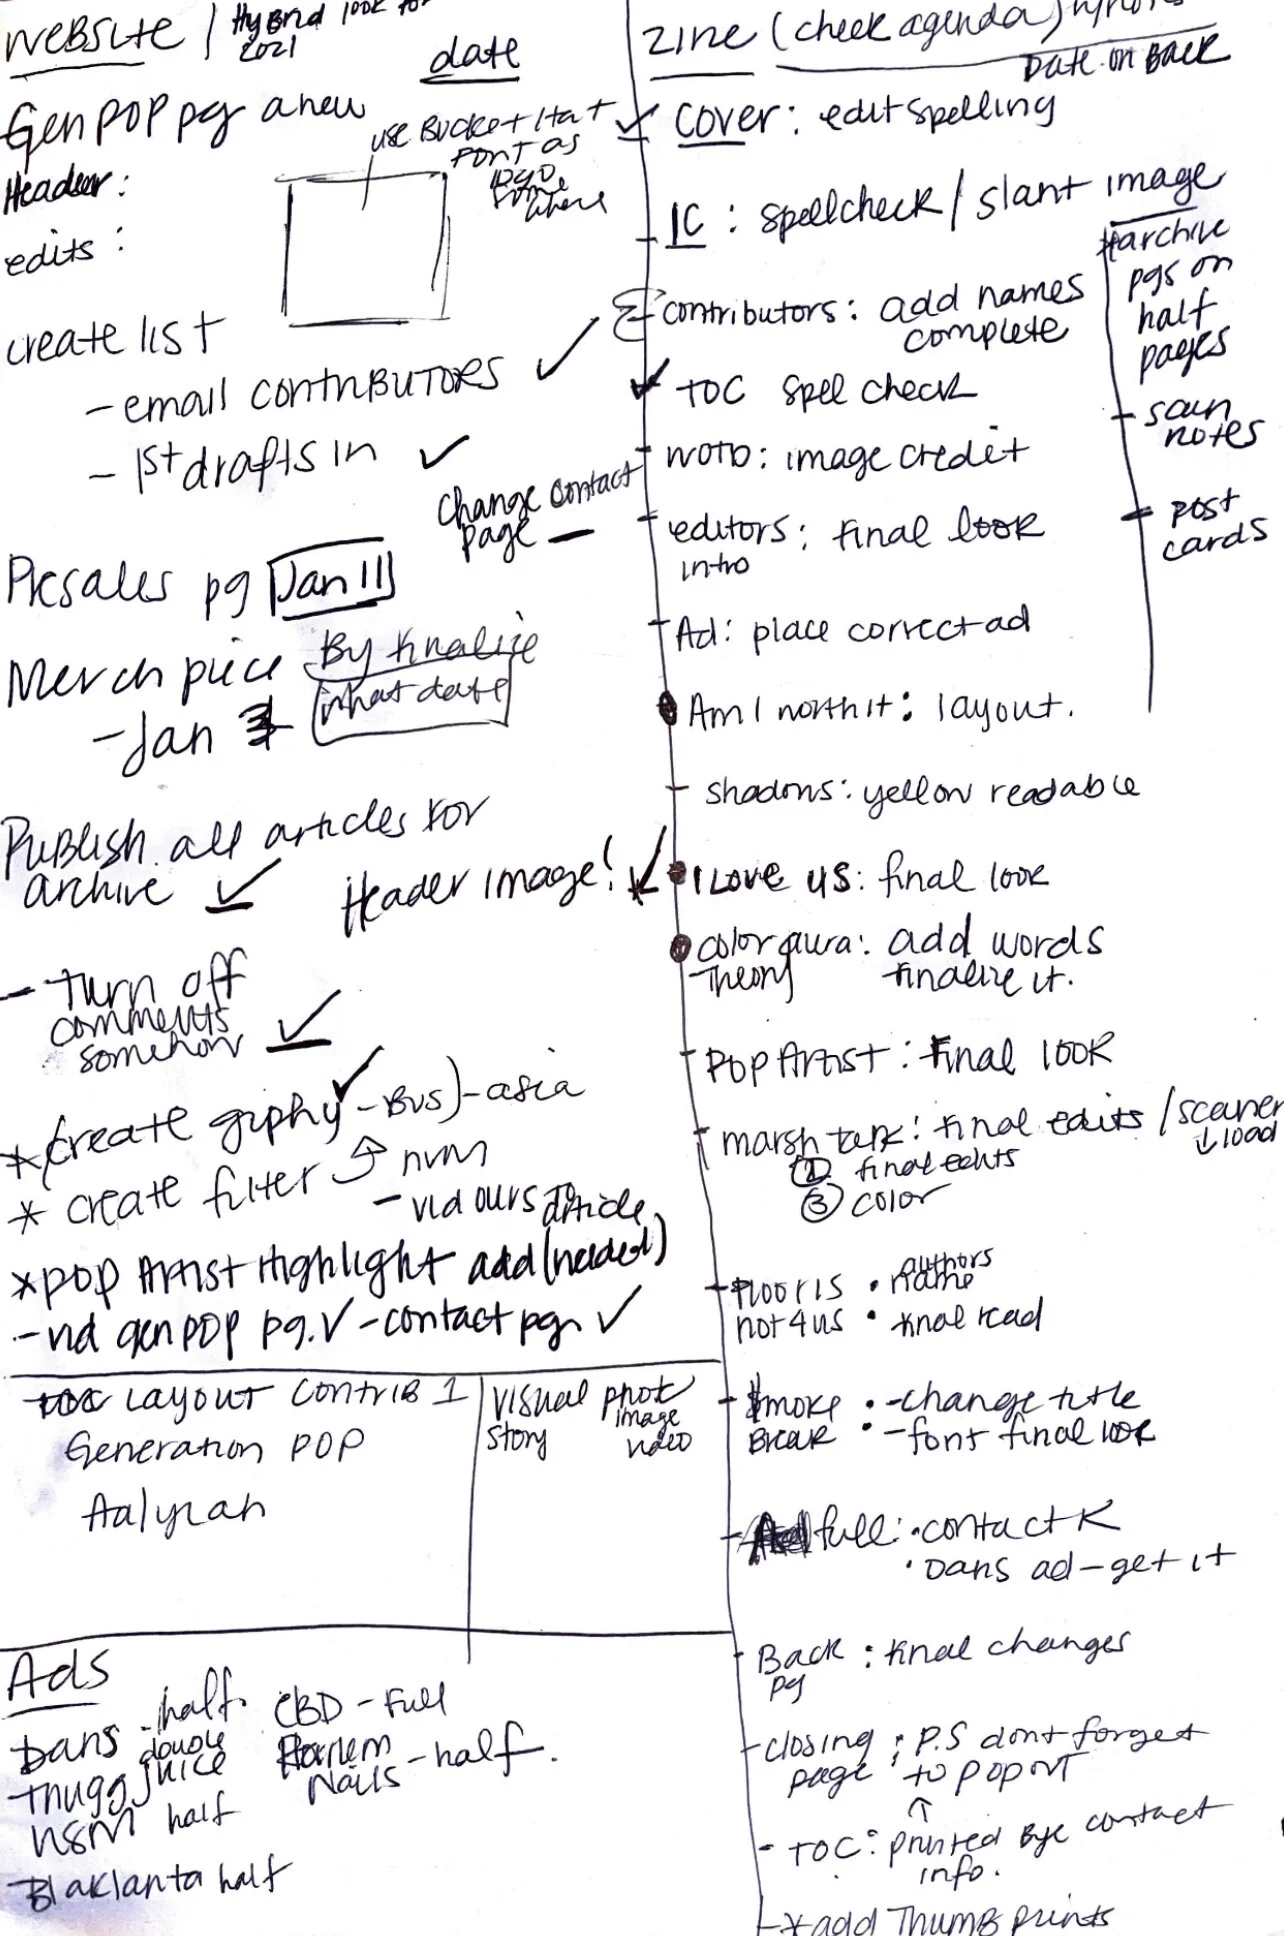 website / Hybrid look for
2021
date
Gen POP pg a new
Header:
use Bucket Hat
font as
logo
some
where
edits:
create list
- email contributors ✓
- 1st drafts in ✓
change contact
page —
Presales pg Jan 11
Merch piece By finalize
what date
- Jan
Publish all articles for
archive ✓
Header image!
- turn off
comments
somehow ✓
* create giphy ✓ - BUS) - asia
* create filter nvm
- vid ours to
article
* pop Artist Highlight add (needed)
- vid genPOP pg. ✓ - contact pg. ✓
Layout contrib 1
Generation POP
Aalyrah
visual
story
photo
image
video
Ads
Dans - half
double
Thugg juice
NSM half
Blaklanta half
CBD - Full
Harlem
Nails - half.
zine (check agenda)
Date on Back
✓ cover: edit spelling
IC: spellcheck / slant image
contributors: add names
complete
✓ TOC spel check
WOTD: image credit
editors: final look
intro
Ad: place correct ad
Am I worth it: layout.
shadows: yellow readable
✓ I Love us: final look
color aura: add words
Theory finalize it.
Pop Artist: Final look
marsh talk: final edits / scaner
↓ load
final edits
③ color
Floor is • authors
name
not 4 us • final read
Smoke • - change title
Break • - font final look
full: • contact K
• Dans ad - get it
Back : final changes
pg
closing : P.S dont forget
page : to pop out
↑
- TOC: printed Bye contact
info.
- * add Thumb prints
archive
pgs on
half
pages
- scan
notes
- post
cards